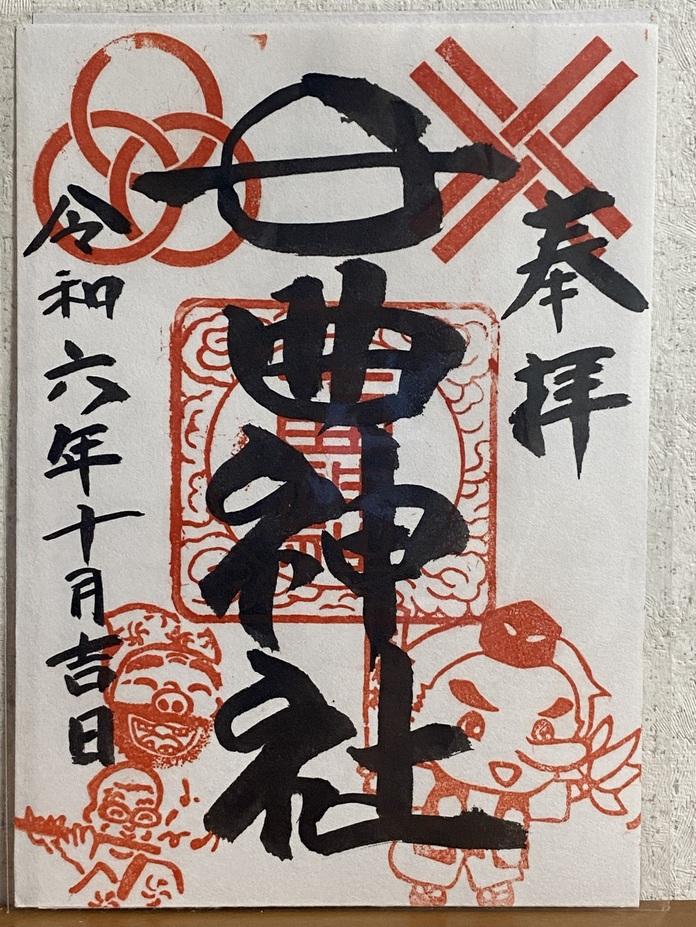 奉拝
日曲神社
令和六年十月吉日